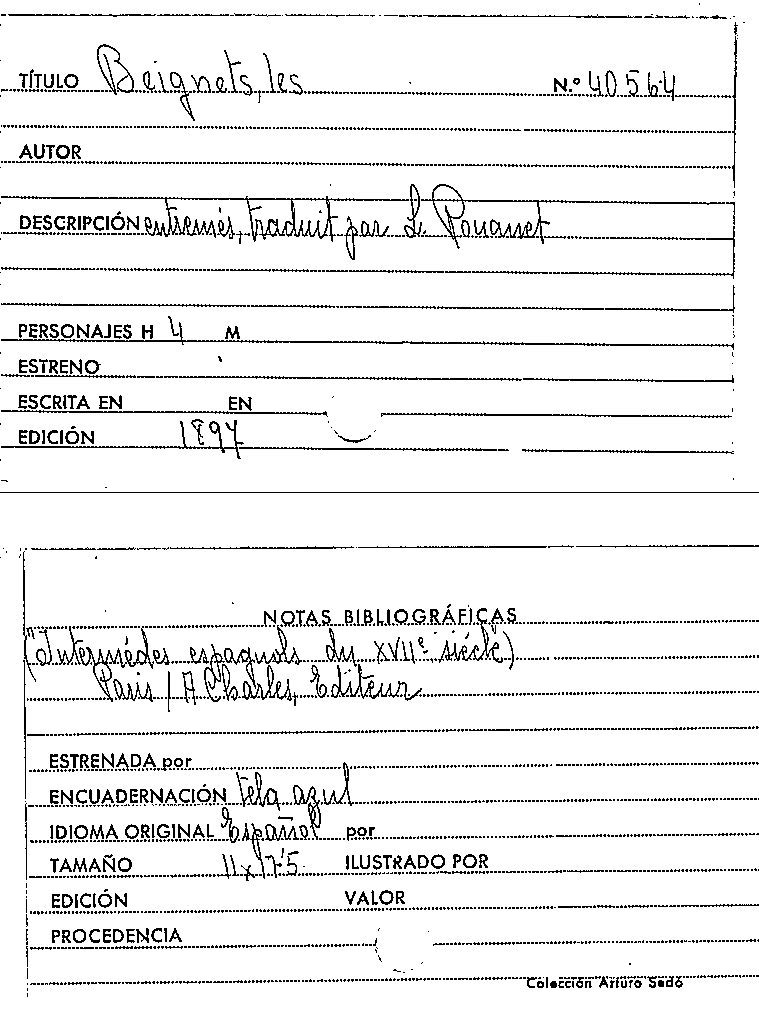 TÍTULO Beignets, les N.º 40564
AUTOR
DESCRIPCIÓN entremés, traduit par L. Rouanet
PERSONAJES H 4 M
ESTRENO
ESCRITA EN EN
EDICIÓN 1897
NOTAS BIBLIOGRÁFICAS
("Intermédes espagnols du XVIIe siécle)
Paris / A Charles, Editeur
ESTRENADA por
ENCUADERNACIÓN tela azul
IDIOMA ORIGINAL Español por
TAMAÑO 11x17'5 ILUSTRADO POR
EDICIÓN VALOR
PROCEDENCIA
Colección Arturo Sedó